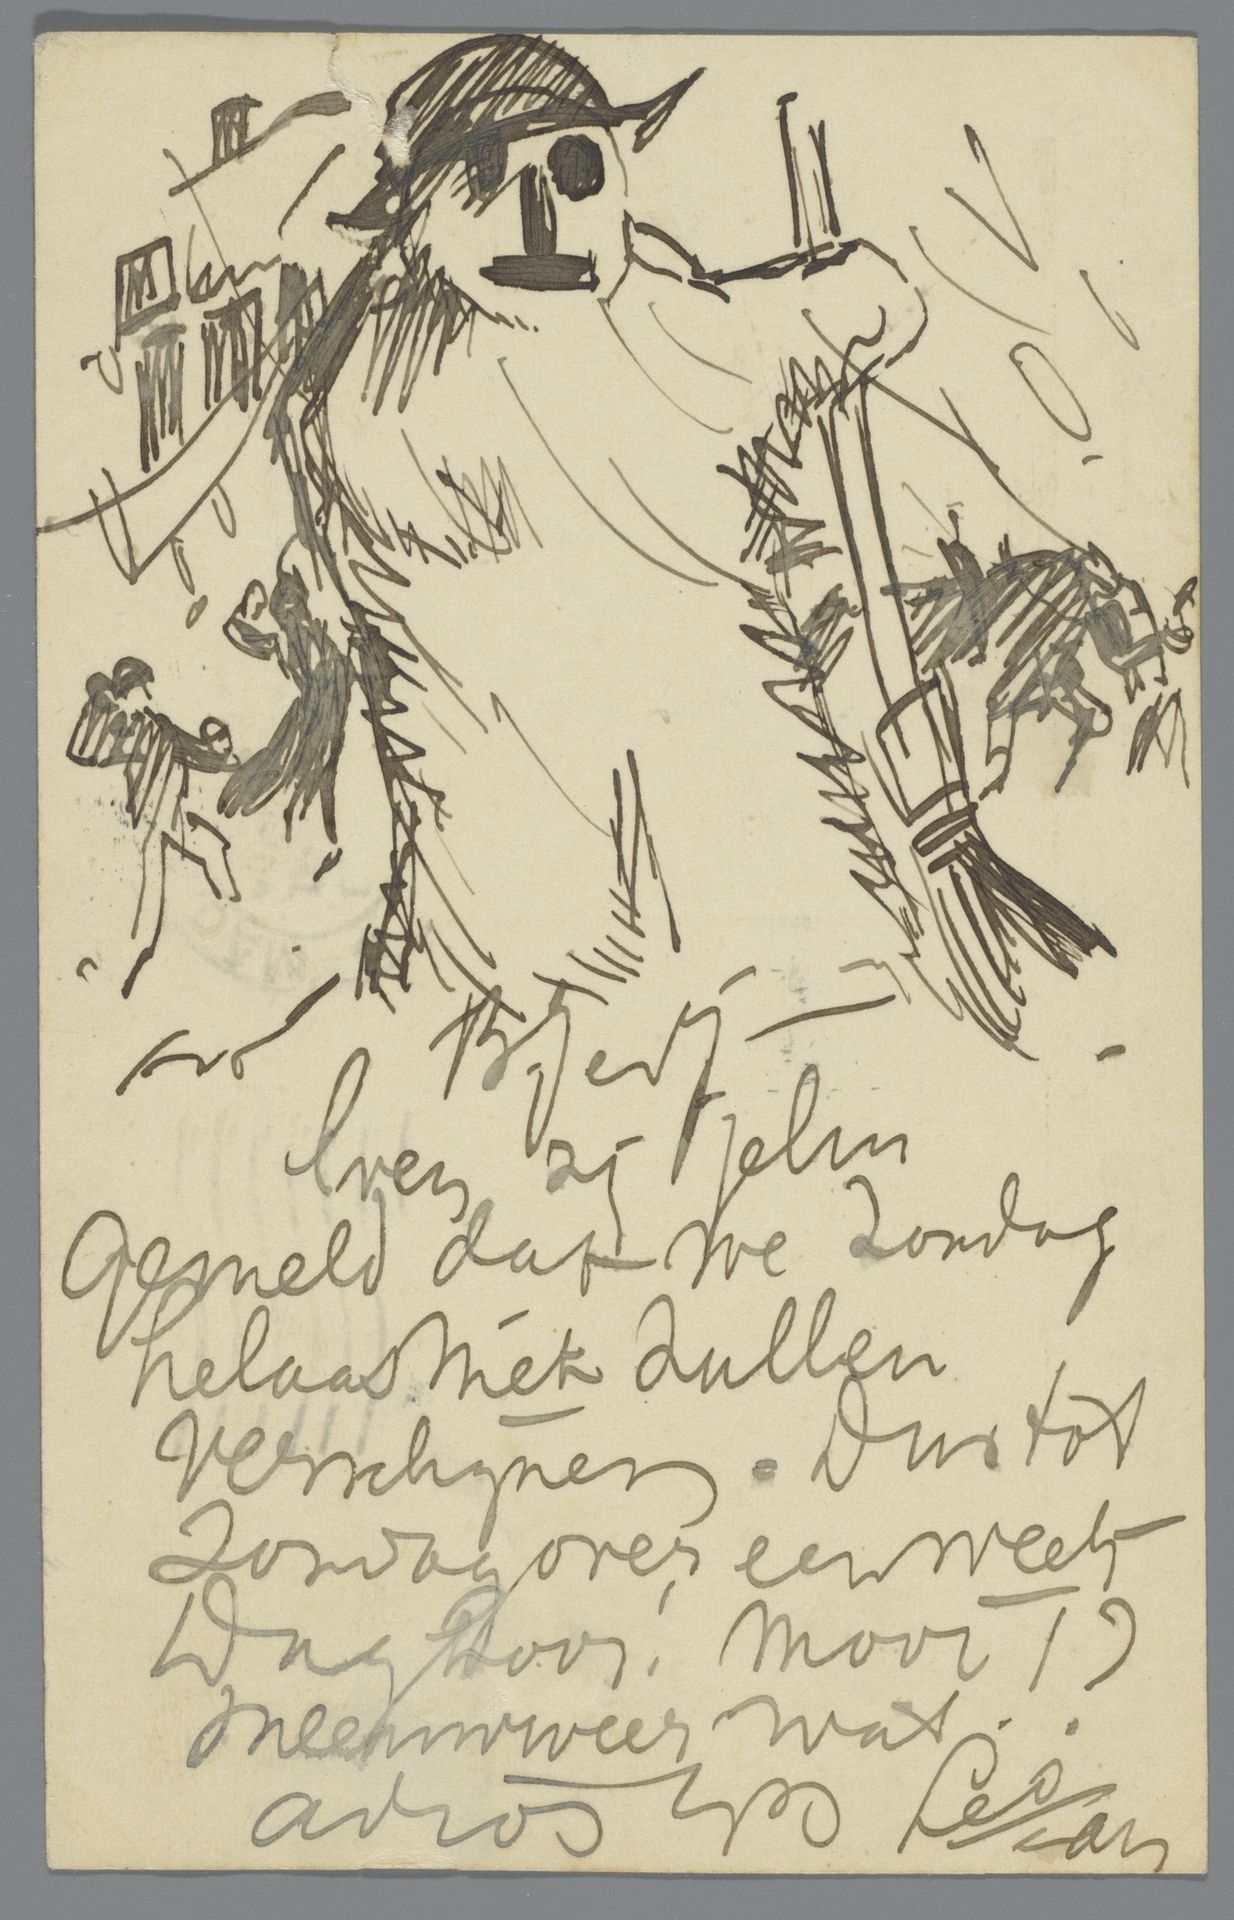 zij
gemeld dat we Zondag
helaas niet zullen
verschijnen. Dus tot
Zondag over een week
Dag hoor! Mooi!?
weer wat..
adios Leo